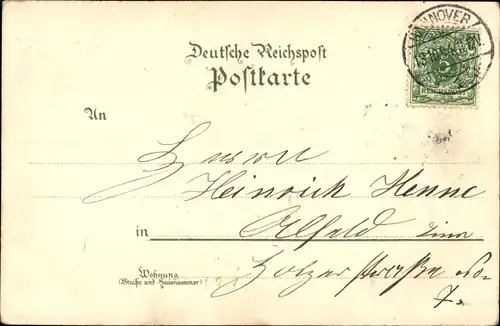 HANNOVER
Deutsche Reichspost
Postkarte
REICHSPOST
An
Herrn
Heinrich Henne
in Alfeld
Wohnung
(Straße und Hausnummer)
Holzerstraße No.
7.